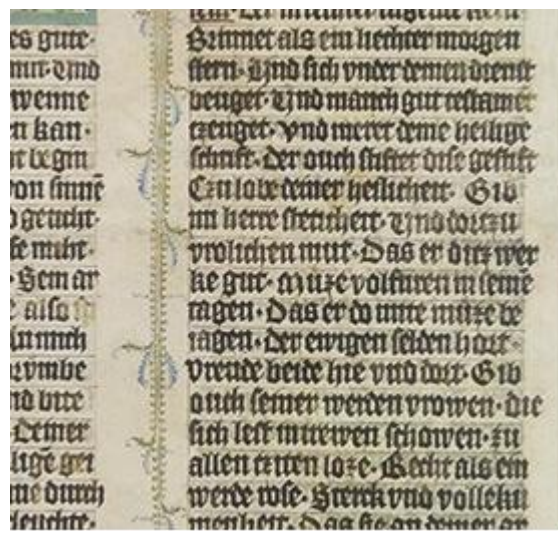 es gute·
mit· Vnd
wenne
n kan·
begin
von sinnē
geticht·
niht·
· Sem ar
also
mich
nd bite
Deiner
ligē gei
me durch
leuchte·
Brinnet als ein liechter morgen
stern· Vnd sich vnder deinen dienst
beuget· Vnd manch gut testamēt
tzeuget· vnd meret deine heilige
schrift· der ouch stiftet dise gestift
Czu lobe deiner heslicheit· Gib
im herre steticheit· Vnd dortzu
vrolichen mut· Das er ditz wer
ke gut· Muze volfuren in seinē
tagen· Das er do mite muze be
iagen· der ewigen selden hort·
vreude beide hie vnd dort· Gib
ouch seiner werden vrowen· die
sich lest in trewen schowen· zu
allen tziten loze· Recht als ein
werde rose· Sterck vnd vollekū
menheit· Das sie an deiner ar